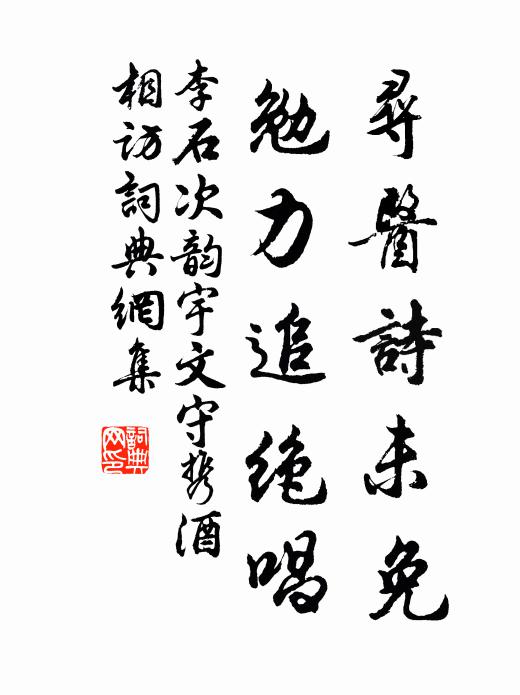 尋醫詩未免
勉力追絶唱
李石次韵宇文守携酒
相訪詞典網集
詞典
网印